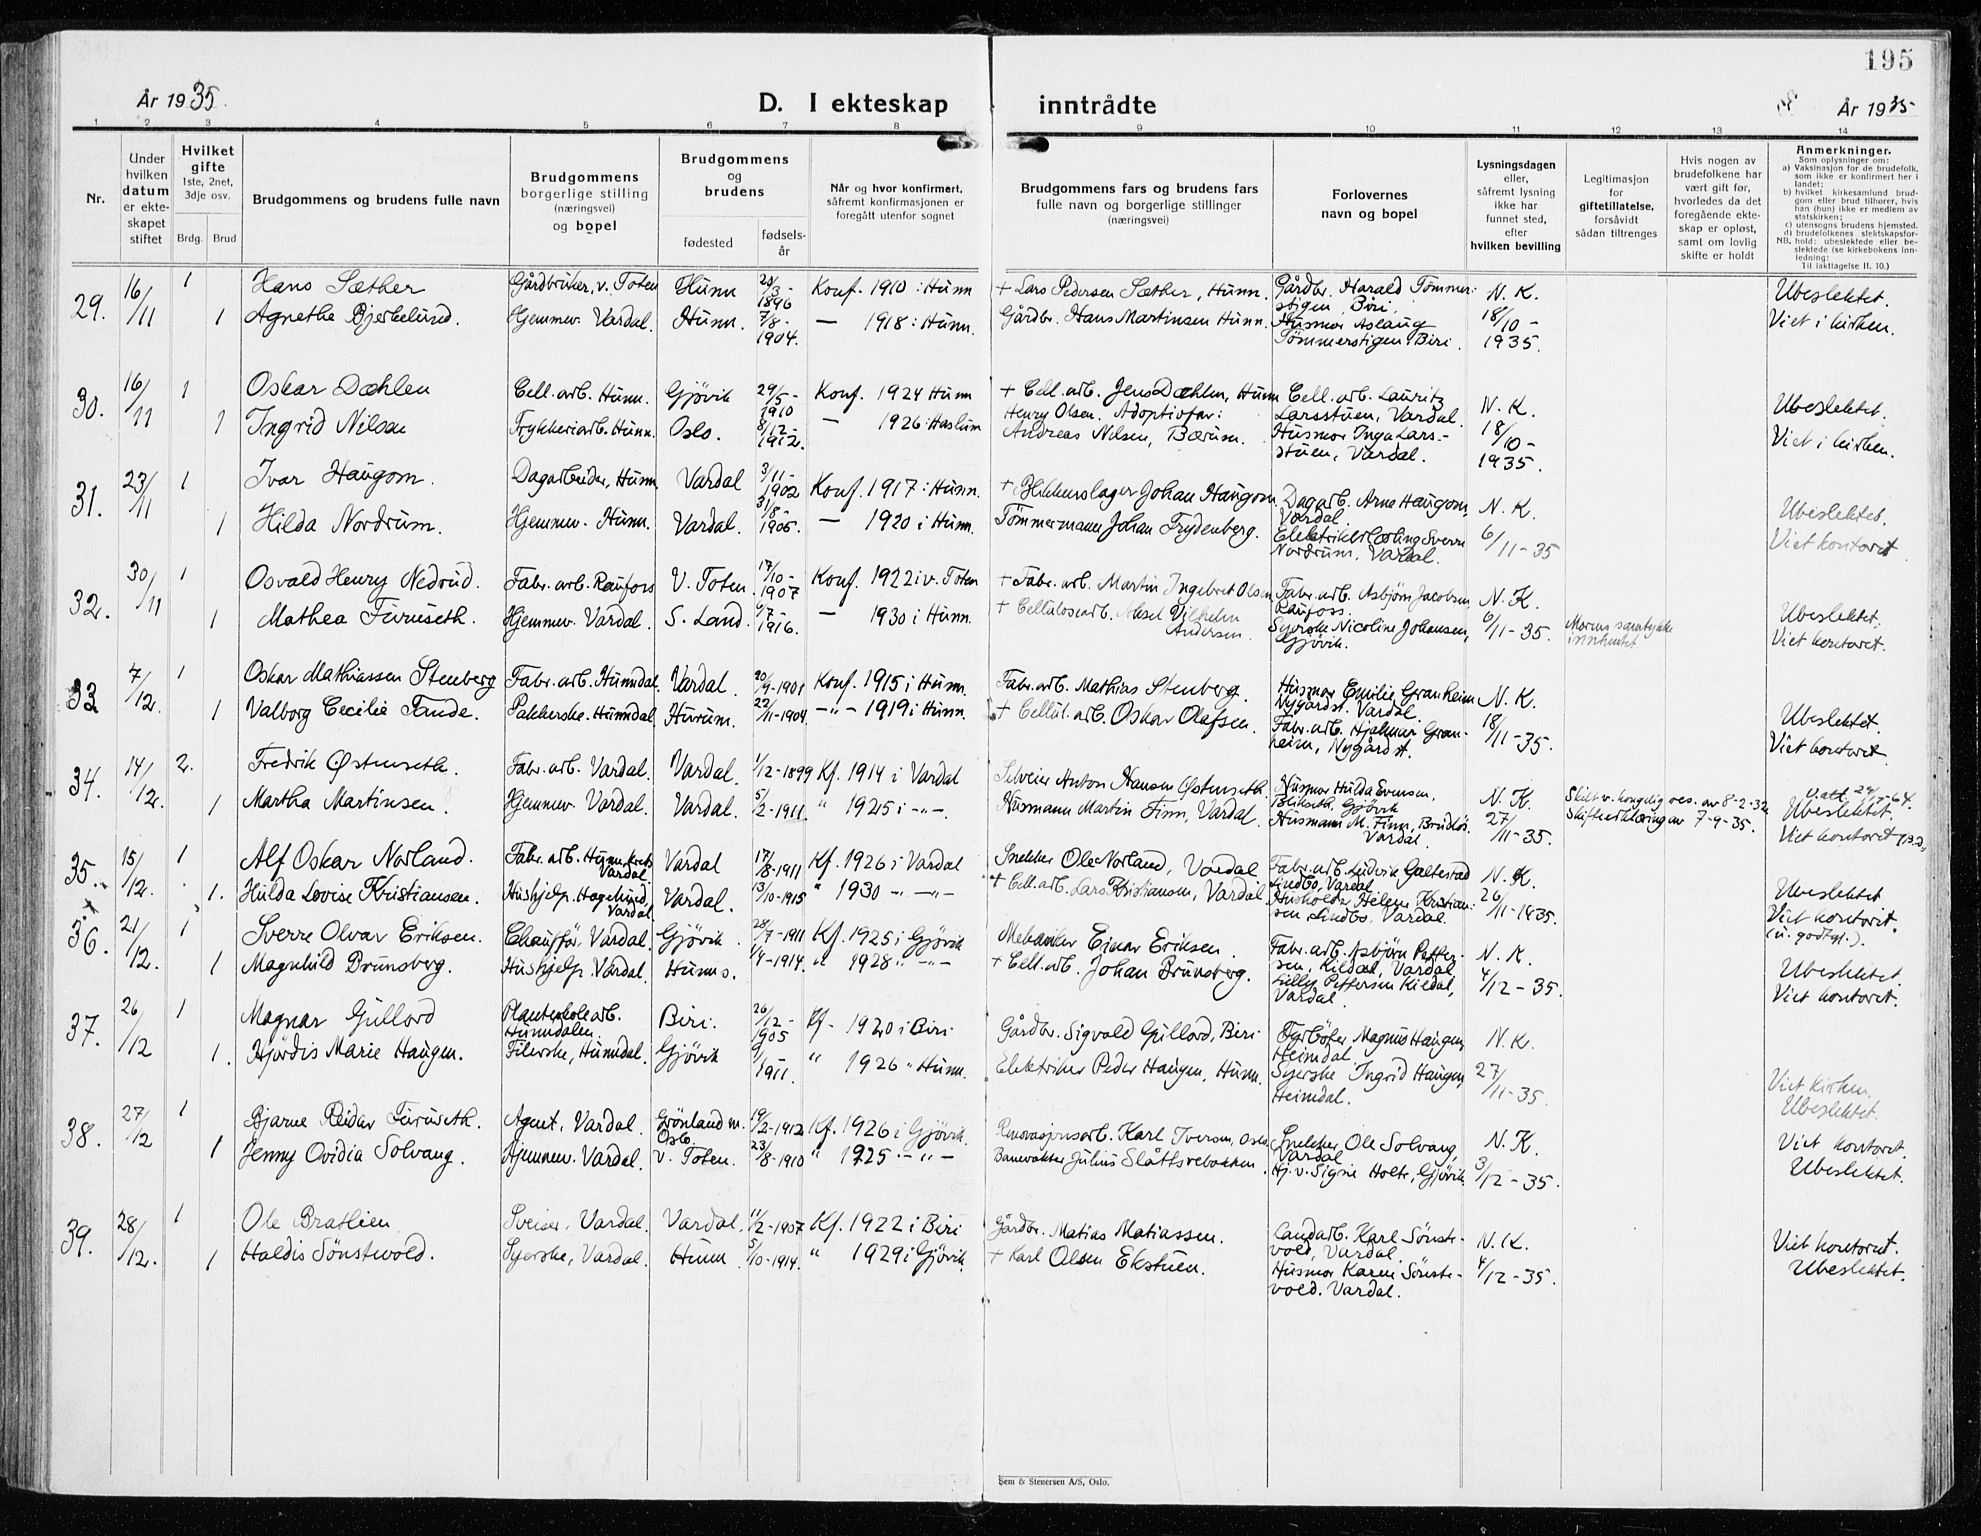 195
År 1935.
D. I ekteskap inntrådte
År 1935
1 2 3 4 5 6 7 8 9 10 11 12 13 14
Nr.
Under hvilken datum er ekteskapet stiftet
Hvilket gifte
1ste, 2net, 3dje osv.
Brdg. Brud
Brudgommens og brudens fulle navn
Brudgommens borgerlige stilling (næringsvei) og bopel
Brudgommens og brudens
fødested
fødselsår
Når og hvor konfirmert, såfremt konfirmasjonen er foregått utenfor sognet
Brudgommens fars og brudens fars fulle navn og borgerlige stillinger (næringsvei)
Forlovernes navn og bopel
Lysningsdagen eller, såfremt lysning ikke har funnet sted, efter hvilken bevilling
Legitimasjon for giftetillatelse, forsåvidt sådan tiltrenges
Hvis nogen av brudefolkene har vært gift før, hvorledes da det foregående ekteskap er opløst, samt om lovlig skifte er holdt
Anmerkninger.
Som oplysninger om:
a) Vaksinasjon for de brudefolk, som ikke er konfirmert her i landet;
b) hvilket kirkesamfund brudgom eller brud tilhører, hvis han (hun) ikke er medlem av statskirken;
c) utensogns brudens hjemsted.
d) brudefolkenes slektskapsforhold: ubeslektede eller beslektede (se kirkebokens innledning:
NB. Til iakttagelse II. 10.)
29. 16/11 1 Hans Sæther Gårdbruker, v. Toten Hunn 20/3-1896 Konf. 1910 i Hunn + Lars Pedersen Sæther, Hunn. Gårdbr. Harald Tømmerstigen, Biri. N. K. Ubeslektet.
1 Agnethe Bjerkelund. Hjemmev. Vardal. Hunn. 7/8-1904. — 1918 i Hunn. Gårdbr. Hans Martinsen Hunn. Husmor Aslaug Tømmerstigen, Biri. 18/10-1935. Viet i kirken.
30. 16/11 1 Oskar Dæhlen Cell. arb. Hunn. Gjövik 29/5-1910 Konf. 1924 Hunn + Cell. arb. Jens Dæhlen, Hunn Cell. arb. Lauritz Larsstuen, Vardal. N. K. Ubeslektet.
1 Ingrid Nilsen Trykkeriarb. Hunn. Oslo. 8/12-1912. — 1926 i Haslum Henry Olsen. Adoptivfar: Andreas Nilsen, Bærum. Husmor Inga Larsstuen, Vardal. 18/10-1935. Viet i kirken.
31. 23/11 1 Ivar Haugom. Dagarbeider, Hunn Vardal 3/11-1902 Konf. 1917 i Hunn. + Blikkenslager Johan Haugom. Dagarb. Arne Haugom, Vardal. N. K. Ubeslektet.
1 Hilda Nordrum. Hjemmev. Hunn. Vardal. 31/8-1905. — 1920 i Hunn. Tömmermann Johan Frydenberg. Elektrikerlærling Sverre Nordrum, Vardal. 6/11-35 Viet kontoret
32. 30/11 1 Osvald Henry Nedrud. Fabr. arb. Raufoss V. Toten. 17/10-1907 Konf. 1922 i v. Toten + Fabr. arb. Martin Ingebret Olsen Fabr. arb. Asbjørn Jacobsen, Raufoss. N. K. Ubeslektet.
1 Mathea Furuseth. Hjemmev. Vardal. S. Land. 6/7-1916. — 1930 i Hunn. + Cellulosearb. Aksel Vilhelm Andersen. Syerske Nicoline Johansen, Gjövik. 6/11-35. Morens samtykke innhentet. Viet kontoret.
33 7/12. 1 Oskar Mathiassen Stenberg Fabr. arb. Hunndal. Vardal. 20/9-1901 Konf. 1915 i Hunn. Fabr. arb. Mathias Stenberg. Husmor Emilie Granheim Nygårdst. Vardal. N. K. Ubeslektet.
1 Valborg Cecilie Tande. Pakkerske. Hunndal. Hurum. 22/11-1904. -"- 1919 i Hunn. + Cellul. arb. Oskar Olafsen. Fabr. arb. Hjalmar Granheim, Nygårdst. 18/11-35. Viet kontoret.
34. 14/12. 2. Fredrik Østenseth. Fabr. arb. Vardal. Vardal. 1/12-1899 Kf. 1914 i Vardal Selveier Anton Hansen Østenseth. Husmor Hulda Evensen, Blikseth, Gjövik N. K. Skilt v. kongelig res. av 8-2-32 Ubeslektet.
1 Martha Martinsen. Hjemmev. Vardal. Vardal. 5/2-1911. " 1925 i -"-. Husmann Martin Finn, Vardal. Husmann M. Finn, Vardal. 27/11-35. Skifteerklæring av 7-9-35. Viet kontoret
35. 15/12. 1 Alf Oskar Norland. Fabr. arb. Vardal Vardal 17/8-1911 Kf. 1926 i Vardal Snekker Ole Norland, Vardal Fabr. arb. Ludvik Galterud Lindbo, Vardal N. K. Ubeslektet
1. Hulda Lovise Kristiansen. Hushjelp. Hagelund, Vardal Vardal. 13/10-1915 " 1930 -"- + Cell. arb. Lars Kristiansen, Vardal. Husholder Helene Kristiansen, Lindbo. Vardal. 26/11-1935. Viet kontoret. (u. godtgj.).
36. 21/12. 1 Sverre Olvar Eriksen. Chauffør, Vardal. Gjövik. 28/7-1911 Kf. 1925 i Gjövik Mekaniker Einar Eriksen. Fabr. arb. Asbjörn Pettersen, Kildal, Vardal N. K. Ubeslektet.
1 Magnhild Brunsberg. Hushjelp. Vardal. Hunns. 1/4-1914. " 1928 " -"- + Cell. arb. Johan Brunsberg. Lilly Pettersen Kildal, Vardal. 4/12-35. Viet kontoret.
37. 26/12 1 Magnar Gullord Planteskolearb. Hunndalen. Biri. 26/12-1905 Kf. 1920 i Biri Gårdbr. Sigvald Gullord, Biri Fyrböter Magnus Haugen, Heimdal. N. K. Viet kirken.
1. Hjördis Marie Haugen. Filerske, Hunndal. Gjövik 1911. " 1926 " Hunn. Elektriker Peder Haugen, Hunn. Syerske Ingrid Haugen, Heimdal. 27/11-35. Ubeslektet.
38. 27/12 1 Bjarne Reidar Furuseth. Agent, Vardal. Grönland m. Oslo. 19/2-1912 Kf. 1926 i Gjövik. Renovasjonsarb. Karl Iversen, Oslo Snekker Ole Solvang, Vardal N. K. Viet kontoret.
1 Jenny Ovidia Solvang. Hjemmev. Vardal. V. Toten. 23/8-1910 " 1925 -"- Banevokter Julius Slåttsvebakken. Hj. v. Signe Holte, Gjövik. 3/12-35. Ubeslektet.
39. 28/12. 1 Ole Bratlien Sveiser, Vardal. Vardal. 11/2-1907 Kf. 1922 i Biri Gårdbr. Matias Matiassen. Landarb. Karl Sönstevold, Vardal. N. K. Viet kontoret.
1 Haldis Sönstevold. Syerske, Vardal. Hunn 5/10-1914. " 1929 i Gjövik. + Karl Olsen Ekstuen. Husmor Karen Sönstevold. Vardal. 4/12-35. Ubeslektet.
Sem & Stenersen A/S, Oslo.